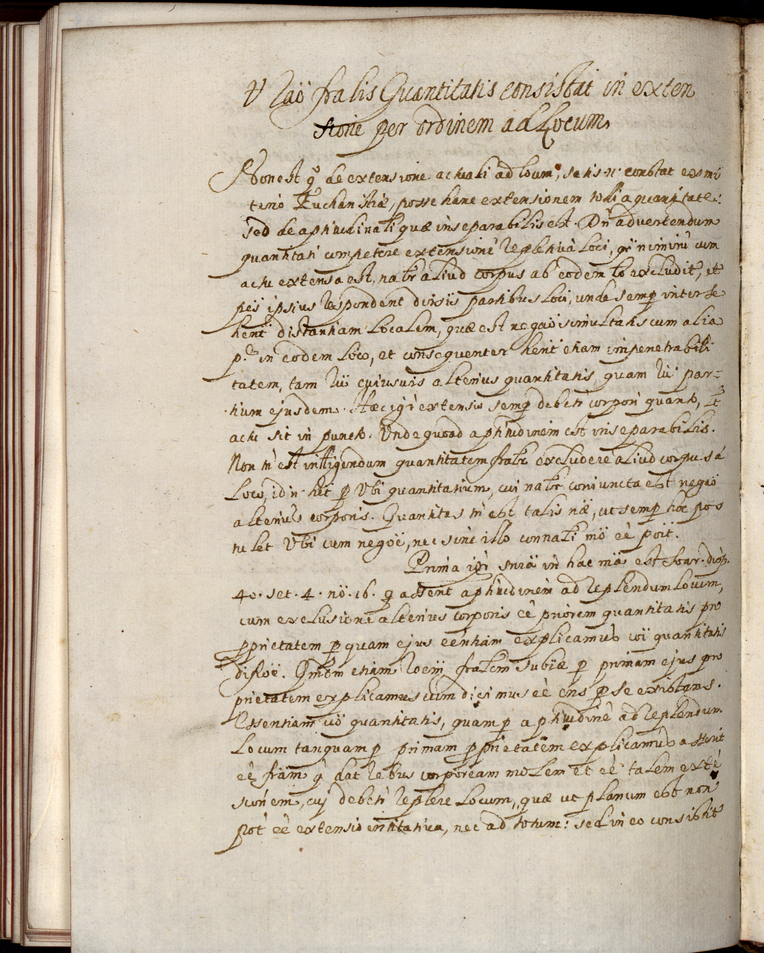 V raõ fralis Quantitatis consistat in exten
sione per ordinem ad Locum
Non est q̃ de extensione actuali ad locum, satis n̄ constat ex mi
terio Eucharistiæ, posse hanc extensionem tolli a quantitate:
sed de aptitudinali quæ inseparabilis est. Dñ advertendum
quantitati competere extensionē repletivā loci, qr̄ nimirū cum
actu extensa est, natr̄ aliud corpus ab eodem lo excludit, et
ptes ipsius respondent divisis partibus loci, unde semp inter se
hent distantiam localem, quæ est negaō simultatis cum alia
p̃te in eodem loco, et consequenter hent etiam impenetrabili
tatem, tam cujusvis alterius quantitatis quam par-
tium ejusdem. Hæc igr̄ extensio semp debetr corpori quanto, et
actu sit in puncto. Unde quoad aptitudinem est inseparabilis.
Non tñ est intelligendum quantitatem fraltr excludere aliud corpus a
loco, id n. fit p Ubi quantitativum, cui natr conjuncta est negaō
alterius corporis. Quantitas tñ est talis næ, ut semp hoc pos
tulet Ubi cum negōe, nec sine illo connatli mō eē poit.
Prima igr̄ snīa in hac mā est disp.
40. set. 4. nō. 16. q asserit aptitudinem ad replendum locum,
cum exclusione alterius corporis eē priorem quantitatis pro
prietatem p quam ejus eēntiam explicamus quantitatis
Qm̄dm etiam fralem subiæ p primam ejus pro
prietatem explicamus cum dicimus eē ens p se existens.
Essentiam vō quantitatis, quam p aptitudinē ad replendum
locum tanquam p primam proprietatem explicamus asserit
eē frām q̃ dat rebus corpoream molem et eē talem exte
sionem, cuj debetr replere locum, quæ ut planum est non
pot eē extensio entitativa, nec ad totum: sed in eo consistit